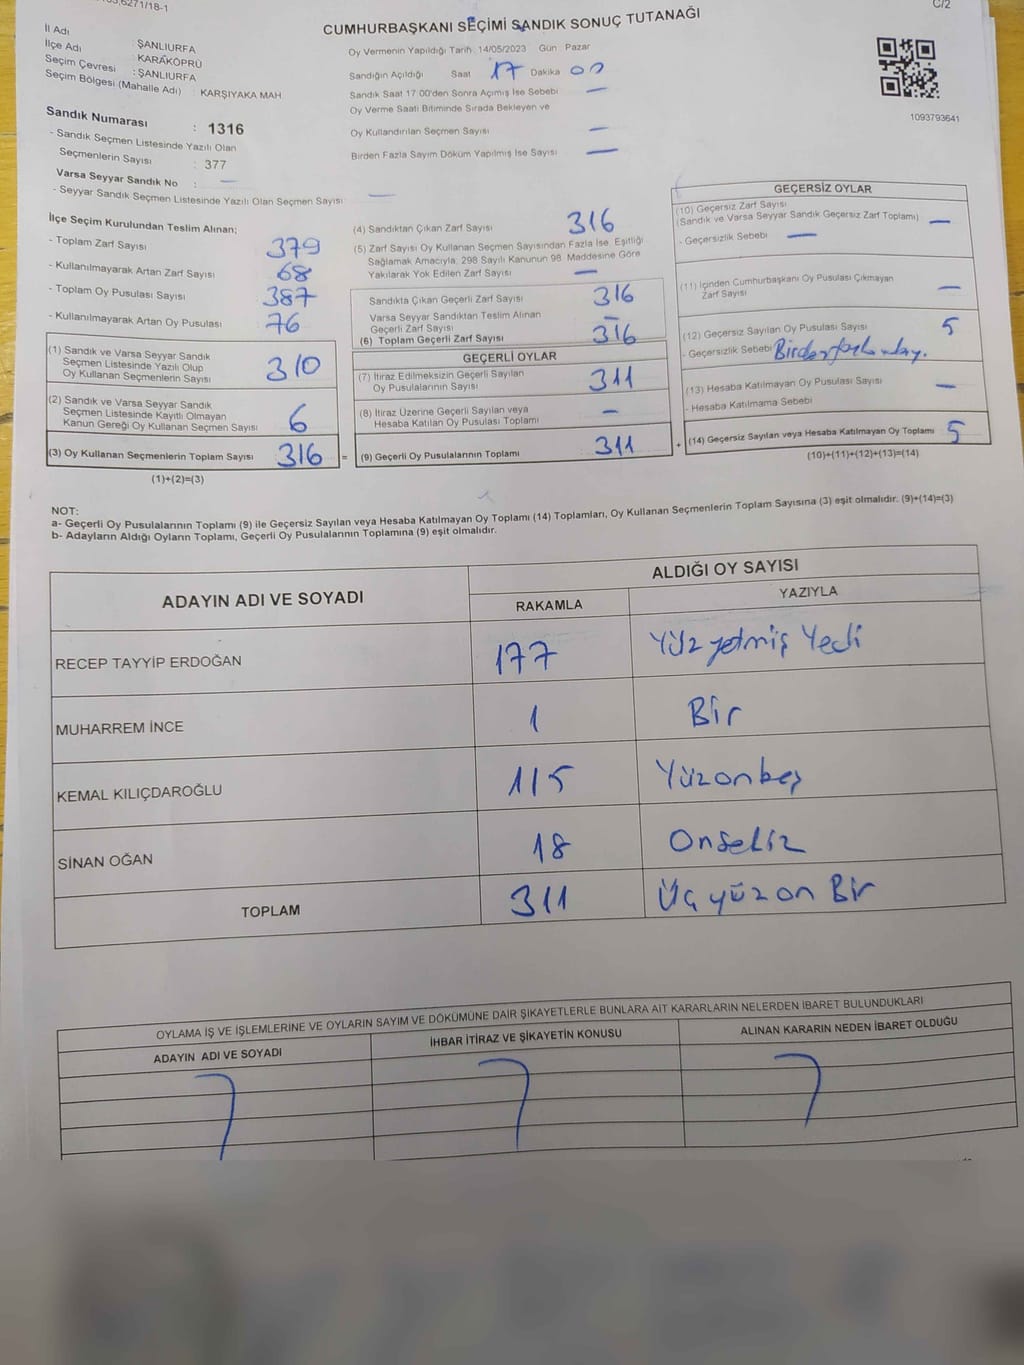 6271/18-1
C/2
CUMHURBAŞKANI SEÇİMİ SANDIK SONUÇ TUTANAĞI
İl Adı : ŞANLIURFA
İlçe Adı : KARAKÖPRÜ
Seçim Çevresi : ŞANLIURFA
Seçim Bölgesi (Mahalle Adı) : KARŞIYAKA MAH
Sandık Numarası : 1316
- Sandık Seçmen Listesinde Yazılı Olan
Seçmenlerin Sayısı : 377
Varsa Seyyar Sandık No : —
- Seyyar Sandık Seçmen Listesinde Yazılı Olan Seçmen Sayısı : —
Oy Vermenin Yapıldığı Tarih : 14/05/2023 Gün Pazar
Sandığın Açıldığı Saat 17 Dakika 00
Sandık Saat 17:00'den Sonra Açımış İse Sebebi —
Oy Verme Saati Bitiminde Sırada Bekleyen ve
Oy Kullandırılan Seçmen Sayısı —
Birden Fazla Sayım Döküm Yapılmış İse Sayısı —
1093793641
İlçe Seçim Kurulundan Teslim Alınan;
- Toplam Zarf Sayısı 379
- Kullanılmayarak Artan Zarf Sayısı 68
- Toplam Oy Pusulası Sayısı 387
- Kullanılmayarak Artan Oy Pusulası 76
(1) Sandık ve Varsa Seyyar Sandık
Seçmen Listesinde Yazılı Olup
Oy Kullanan Seçmenlerin Sayısı 310
(2) Sandık ve Varsa Seyyar Sandık
Seçmen Listesinde Kayıtlı Olmayan
Kanun Gereği Oy Kullanan Seçmen Sayısı 6
(3) Oy Kullanan Seçmenlerin Toplam Sayısı 316 =
(1)+(2)=(3)
(4) Sandıktan Çıkan Zarf Sayısı 316
(5) Zarf Sayısı Oy Kullanan Seçmen Sayısından Fazla İse, Eşitliği
Sağlamak Amacıyla; 298 Sayılı Kanunun 98. Maddesine Göre
Yakılarak Yok Edilen Zarf Sayısı —
Sandıkta Çıkan Geçerli Zarf Sayısı 316
Varsa Seyyar Sandıktan Teslim Alınan
Geçerli Zarf Sayısı —
(6) Toplam Geçerli Zarf Sayısı 316
GEÇERLİ OYLAR
(7) İtiraz Edilmeksizin Geçerli Sayılan
Oy Pusulalarının Sayısı 311
(8) İtiraz Üzerine Geçerli Sayılan veya
Hesaba Katılan Oy Pusulası Toplamı —
(9) Geçerli Oy Pusulalarının Toplamı 311 +
GEÇERSİZ OYLAR
(10) Geçersiz Zarf Sayısı
(Sandık ve Varsa Seyyar Sandık Geçersiz Zarf Toplamı) —
- Geçersizlik Sebebi —
(11) İçinden Cumhurbaşkanı Oy Pusulası Çıkmayan
Zarf Sayısı —
(12) Geçersiz Sayılan Oy Pusulası Sayısı 5
- Geçersizlik Sebebi Birden fazla oy.
(13) Hesaba Katılmayan Oy Pusulası Sayısı —
- Hesaba Katılmama Sebebi
(14) Geçersiz Sayılan veya Hesaba Katılmayan Oy Toplamı 5
(10)+(11)+(12)+(13)=(14)
NOT:
a- Geçerli Oy Pusulalarının Toplamı (9) ile Geçersiz Sayılan veya Hesaba Katılmayan Oy Toplamı (14) Toplamları, Oy Kullanan Seçmenlerin Toplam Sayısına (3) eşit olmalıdır. (9)+(14)=(3)
b- Adayların Aldığı Oyların Toplamı, Geçerli Oy Pusulalarının Toplamına (9) eşit olmalıdır.
ADAYIN ADI VE SOYADI
ALDIĞI OY SAYISI
RAKAMLA YAZIYLA
RECEP TAYYİP ERDOĞAN 177 Yüz yetmiş Yedi
MUHARREM İNCE 1 Bir
KEMAL KILIÇDAROĞLU 115 Yüzonbeş
SİNAN OĞAN 18 Onsekiz
TOPLAM 311 Üçyüz on Bir
OYLAMA İŞ VE İŞLEMLERİNE VE OYLARIN SAYIM VE DÖKÜMÜNE DAİR ŞİKAYETLERLE BUNLARA AİT KARARLARIN NELERDEN İBARET BULUNDUKLARI
ADAYIN ADI VE SOYADI İHBAR İTİRAZ VE ŞİKAYETİN KONUSU ALINAN KARARIN NEDEN İBARET OLDUĞU